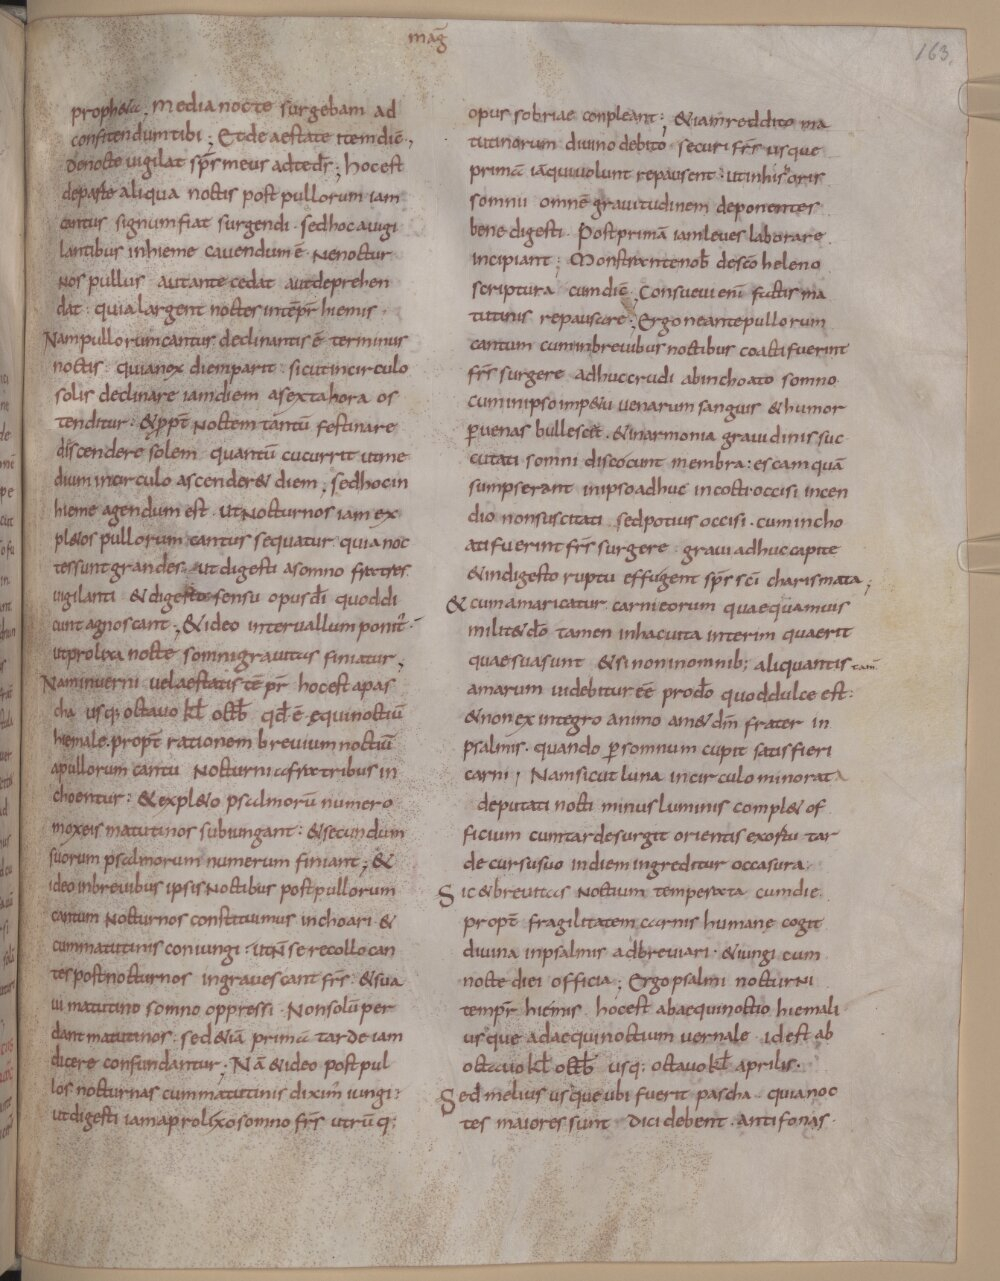 maḡ
163.
propheta; Media nocte surgebam ad
confitendum tibi; Et de aestate item dic̄;
De nocte vigilat sp̄s meus ad te ds̄; hoc est
de parte aliqua noctis post pullorum iam
cantus signum fiat surgendi. sed hoc a uigi
lantibus in hieme cauendum ē. Ne noctur
nos pullus aut ante cedat aut deprehen
dat: quia largent noctes in tēpr̄ hiemis.
Nam pullorum cantus declinantis ē terminus
noctis: quia nox diem parit: sicut in circulo
solis declinare iam diem a sexta hora os
tenditur: & ppt̄ noctem tantū festinare
discendere solem quantū cucurrit ut me
dium in circulo ascender& diem; sed hoc in
hieme agendum est. ut Nocturnos iam ex
pl&os pullorum cantus sequatur quia noc
tes sunt grandes. ut digesti a somno fratres
uigilanti & digesto sensu opus dī quod di
cunt agnoscant; & ideo interuallum ponit̄.
ut prolixa nocte somni grauitas finiatur;
Nam in uerni uel aestatis tē pr̄ hoc est a pas
cha usq; octauo kl̄ octb̄ qd̄ ē equinoctiū
hiemale. propt̄ rationem breuium noctiū
a pullorum cantu Nocturni a fratribus in
choentur: & expl&o psalmorū numero
mox eis matutinos subiungant: & secundum
suorum psalmorum numerum finiant; &
ideo in breuibus ipsis noctibus post pullorum
cantum Nocturnos constituimus inchoari. &
cum matutinis coniungi: ut N̄ se recollocan
tes post nocturnos ingrauescant fr̄s. & sua
ui matutino somno oppressi. Non solū per
dant matutinos. sed &iā primā tarde iam
dicere confundantur; Nā & ideo post pul
los nocturnas cum matutinis dixim̄ iungi:
ut digesti iam a prolixo somno fr̄s utrūq;
opus sobriae conpleant; & iam reddito ma
tutinorum diuino debito securi fr̄s usque
primā iā qui uolunt repausent: ut in his oris
somni omnē grauitudinem deponentes
bene digesti. Post primā iam leues laborare
incipiant; Monstrante nob̄ de sc̄o heleno
scriptura cum dic̄; Consueui eni factis ma
tutinis repausare; Ergo ne ante pullorum
cantum cum in breuibus noctibus coacti fuerint
fr̄s surgere adhuc crudi ab inchoato somno
cum in ipso imp&u uenarum sanguis & humor
p̱ uenas bullescit. & in armonia grauidinis suc
cutati somni discocunt membra: escam quā
sumpserant in ipso adhuc in cocto occisi incen
dio non suscitati sed potius occisi. cum incho
ati fuerint fr̄s surgere graui adhuc capite
& indigesto ruptu effugent sp̄s sc̄i charismata;
& cum amaricatur carni eorum quae quamuis
milit& dō tamen in hac uita interim quaerit
quae sua sunt & si non in omnib; aliquantis tam̄
amarum uidebitur eē pro dō quod dulce est:
& non ex integro animo am& dm̄ frater in
psalmis. quando p̱ somnum cupit satisfieri
carni; Nam sicut luna in circulo minorata
deputati nocti minus luminis compl& of
ficium cum tarde surgit orientis exortu tar
de cursu suo in diem ingreditur occasura.
Sic & breuitas noctium temperata cum die.
propt̄ fragilitatem carnis humane cogit
diuina in psalmis adbreuiari. & iungi cum
nocte diei officia; Ergo psalmi nocturni
tempr̄ hiemis hoc est ab aequinoctio hiemali
usque ad aequinoctium uernale. id est ab
octauo kl̄ octb̄ usq; octauo kl̄ aprilis.
Sed melius usque ubi fuerit pascha. quia noc
tes maiores sunt. Dici debent. antifonas.